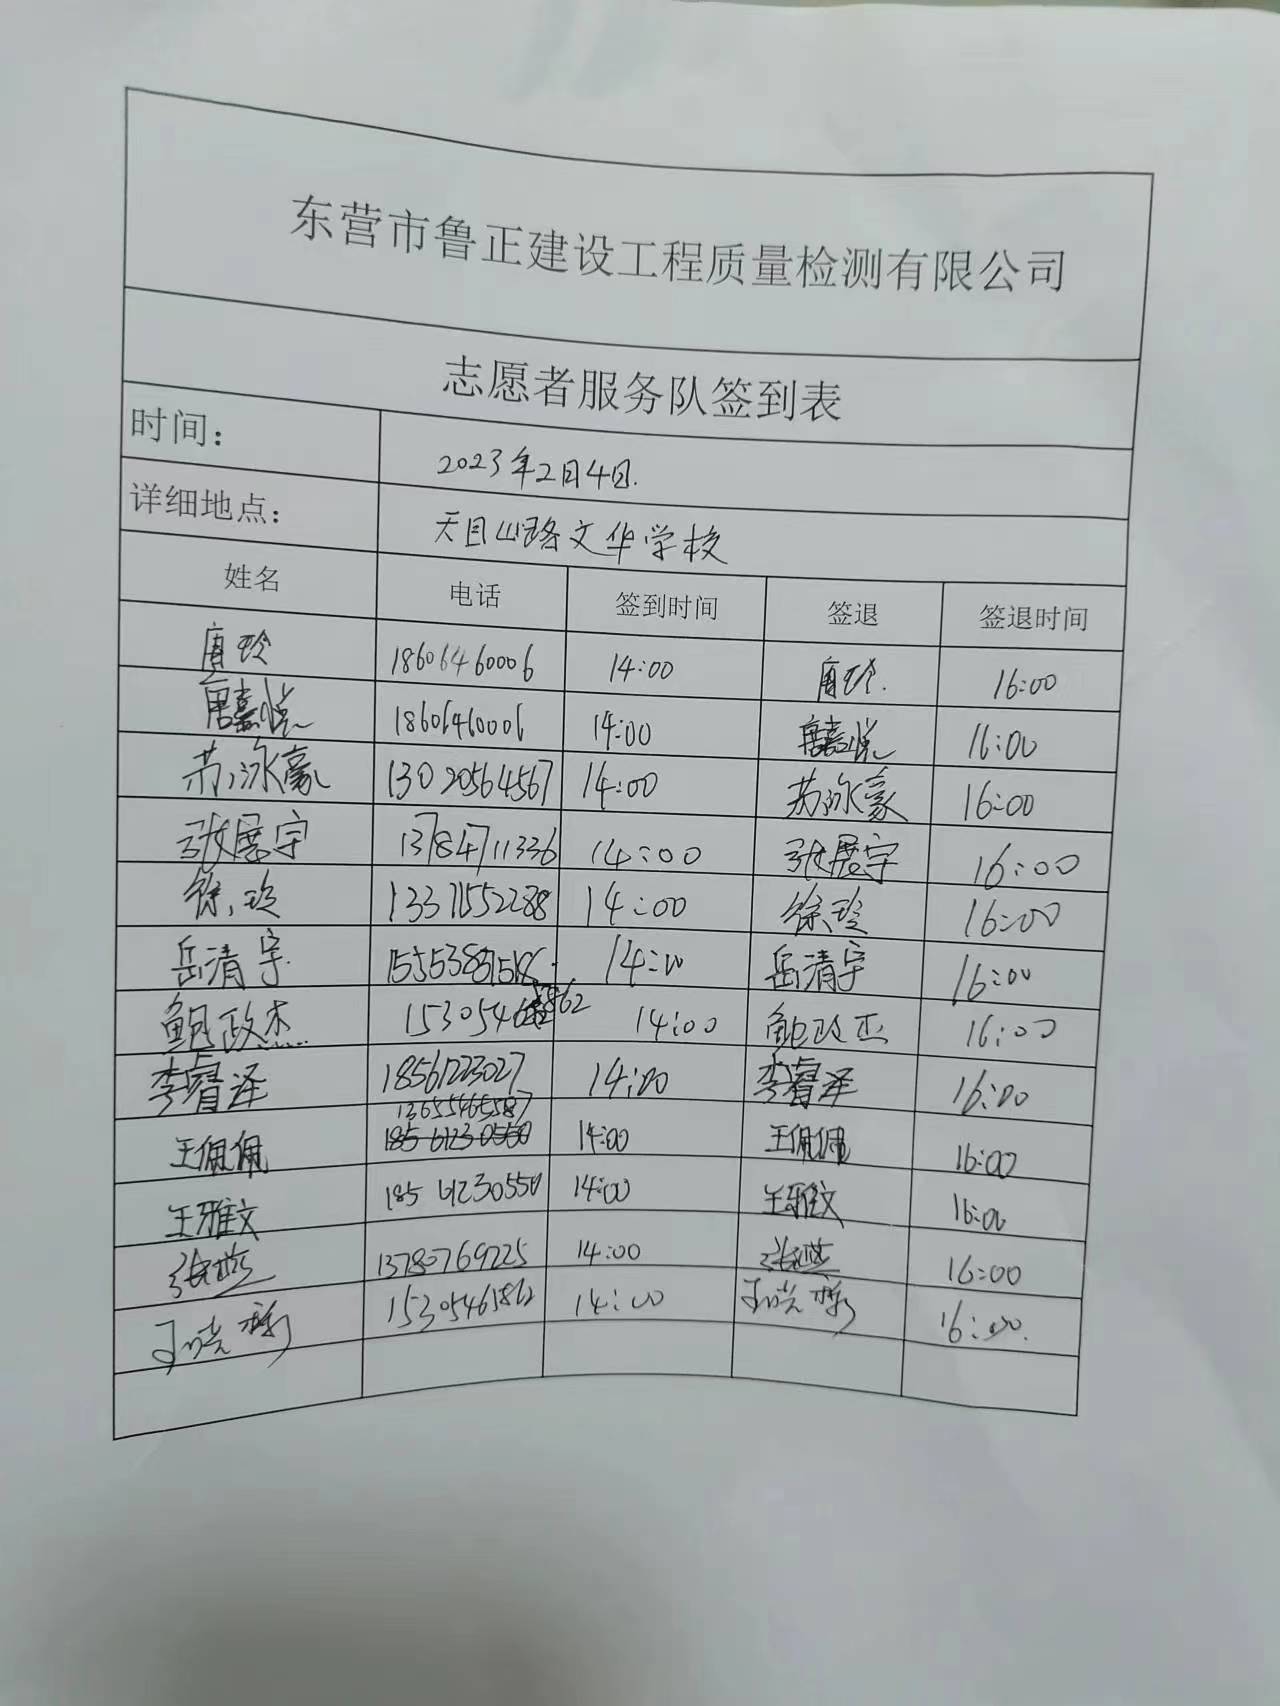 东营市鲁正建设工程质量检测有限公司
志愿者服务队签到表
时间： 2023年2月4日.
详细地点： 天目山路文华学校
姓名 电话 签到时间 签退 签退时间
唐玲 18606460006 14:00 唐玲. 16:00
唐嘉悦 18606460006 14:00 唐嘉悦 16:00
苏泳豪 13020564567 14:00 苏泳豪 16:00
张展宇 13784711336 14:00 张展宇 16:00
徐玲 13371552288 14:00 徐玲 16:00
岳清宇 14:00 岳清宇 16:00
鲍政杰 14:00 鲍政杰 16:00
李睿泽 18561223027 14:00 李睿泽 16:00
13655465587
王佩佩 18561230550 14:00 王佩佩 16:00
王雅文 18561230550 14:00 王雅文 16:00
张燕 13780769225 14:00 张燕 16:00
15305461862 14:00 16:00.